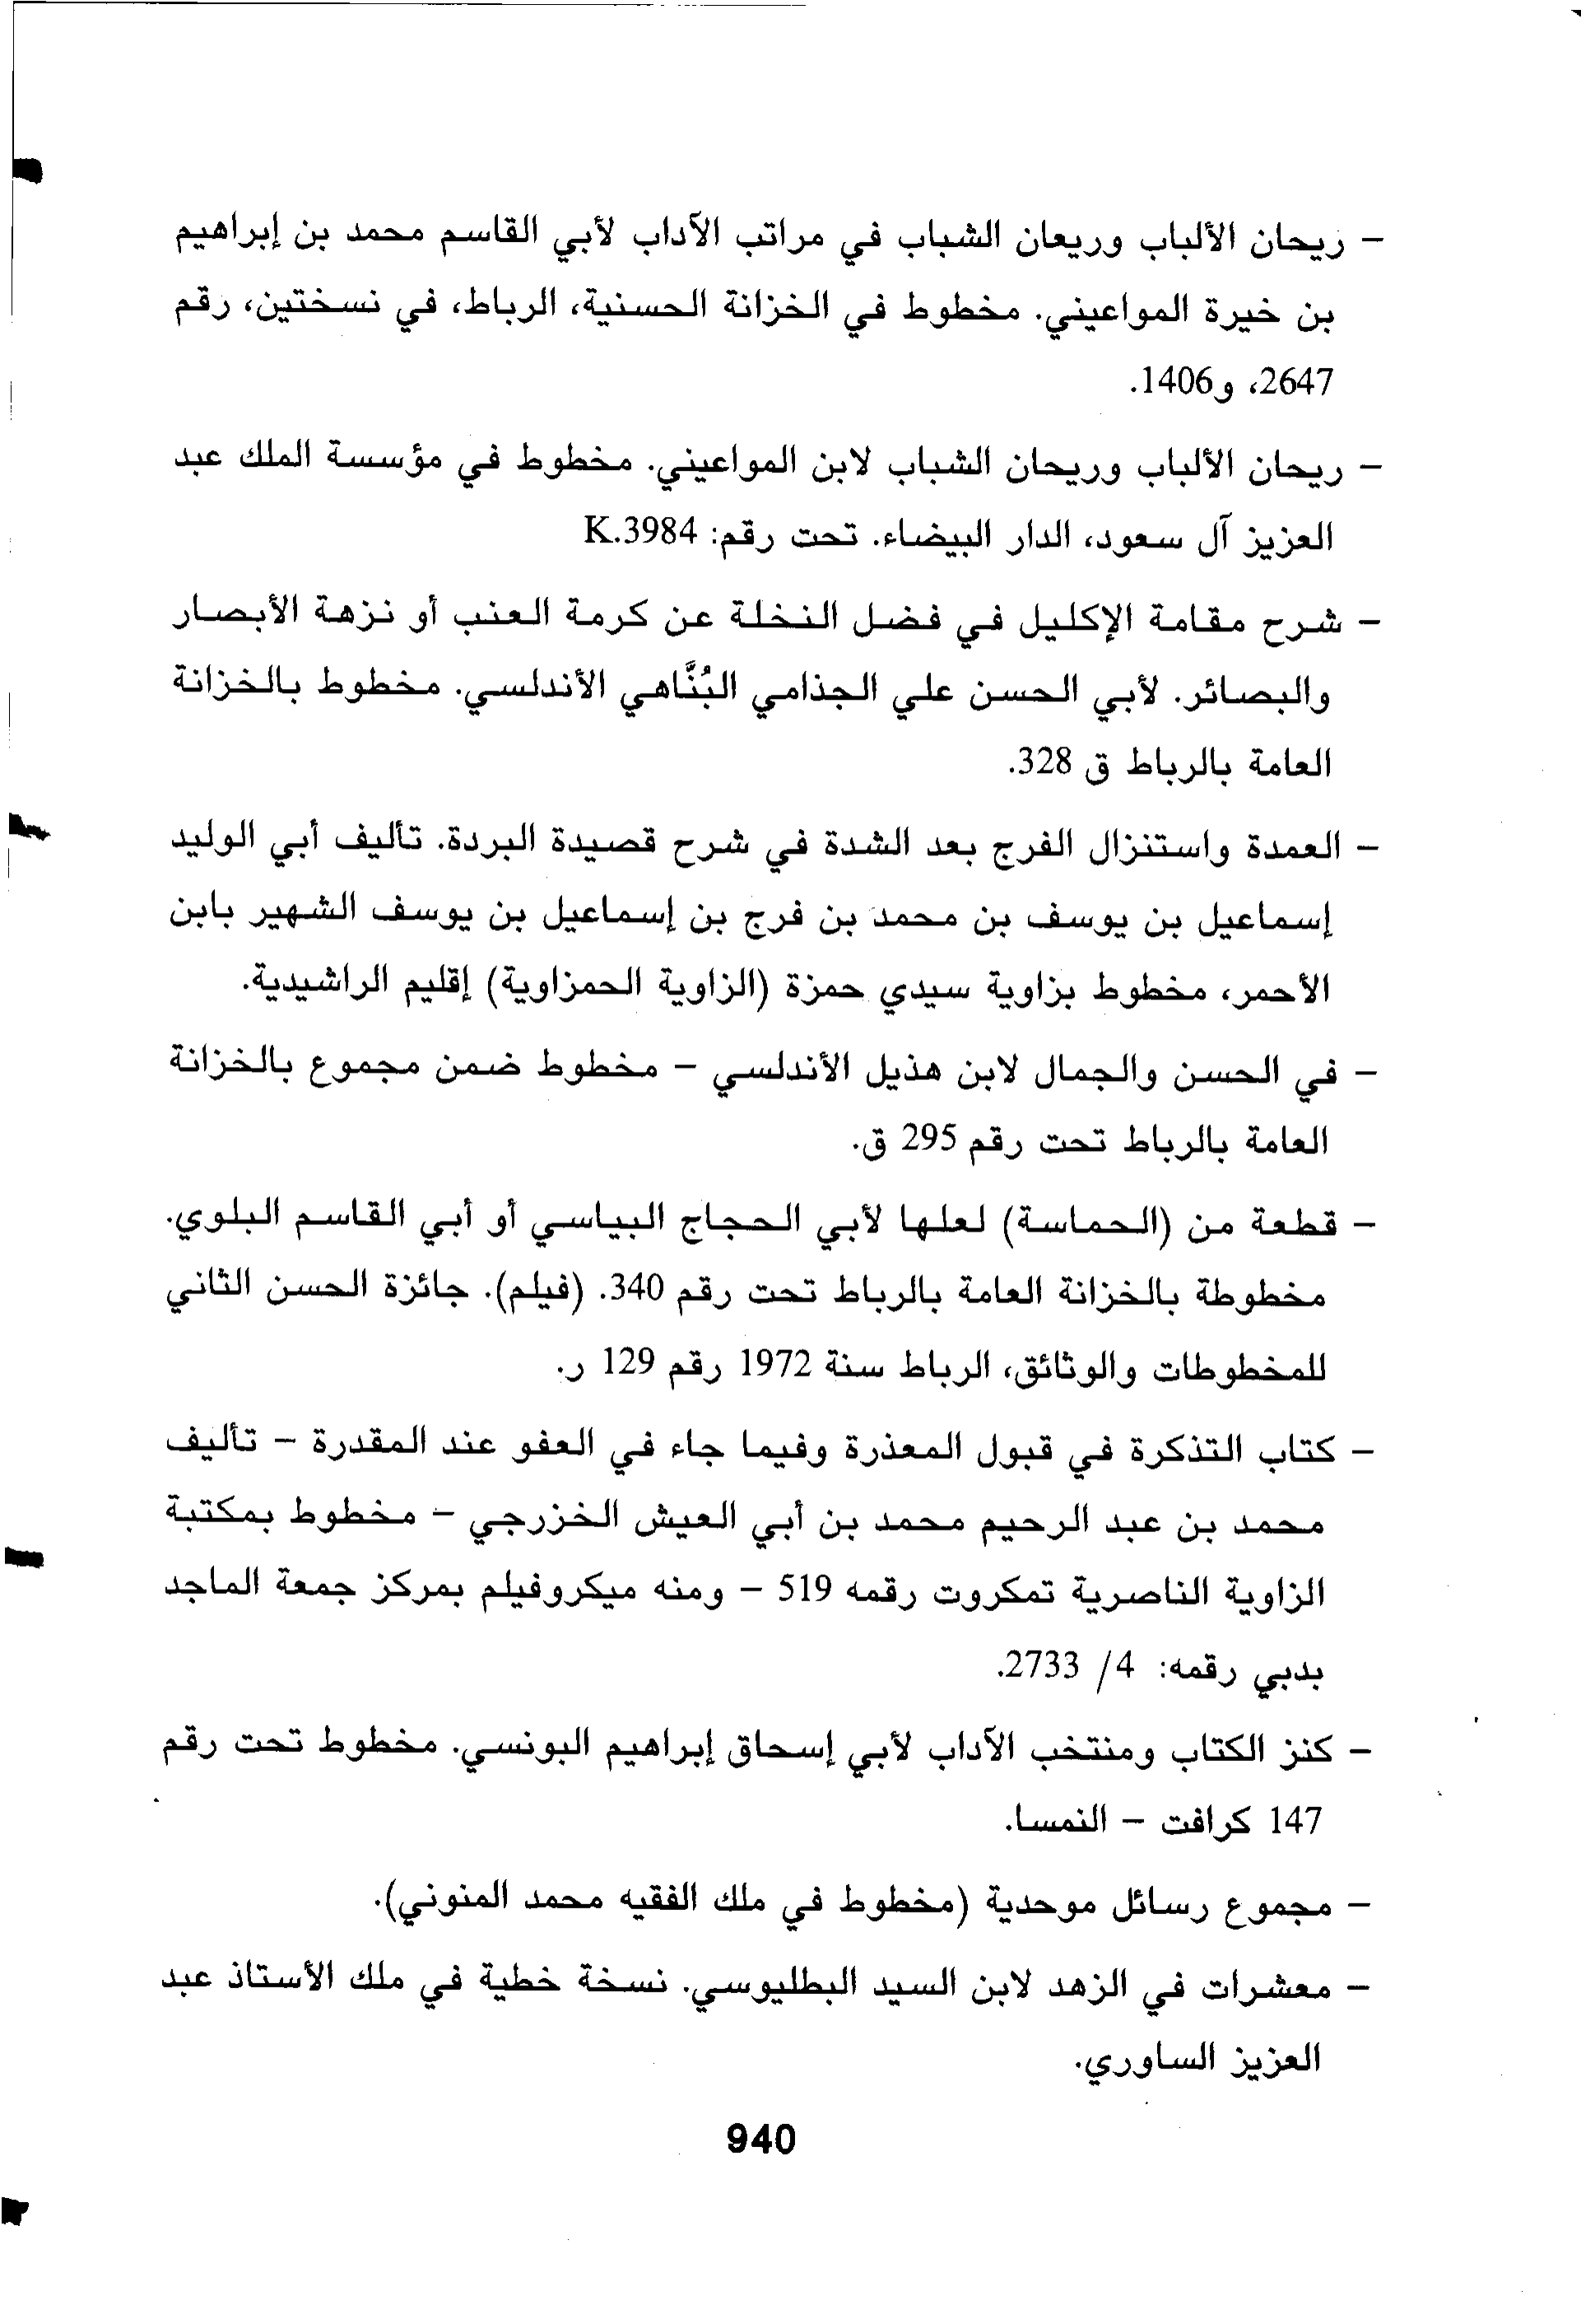 – ريحان الألباب وريعان الشباب في مراتب الآداب لأبي القاسم محمد بن إبراهيم
بن خيرة المواعيني. مخطوط في الخزانة الحسنية، الرباط، في نسختين، رقم
2647، و1406.
– ريحان الألباب وريحان الشباب لابن المواعيني. مخطوط في مؤسسة الملك عبد
العزيز آل سعود، الدار البيضاء. تحت رقم: K.3984
– شرح مقامة الإكليل في فضل النخلة عن كرمة العنب أو نزهة الأبصار
والبصائر. لأبي الحسن علي الجذامي البُنَّاهي الأندلسي. مخطوط بالخزانة
العامة بالرباط ق 328.
– العمدة واستنزال الفرج بعد الشدة في شرح قصيدة البردة. تأليف أبي الوليد
إسماعيل بن يوسف بن محمد بن فرج بن إسماعيل بن يوسف الشهير بابن
الأحمر، مخطوط بزاوية سيدي حمزة (الزاوية الحمزاوية) إقليم الراشيدية.
– في الحسن والجمال لابن هذيل الأندلسي – مخطوط ضمن مجموع بالخزانة
العامة بالرباط تحت رقم 295 ق.
– قطعة من (الحماسة) لعلها لأبي الحجاج البياسي أو أبي القاسم البلوي.
مخطوطة بالخزانة العامة بالرباط تحت رقم 340. (فيلم). جائزة الحسن الثاني
للمخطوطات والوثائق، الرباط سنة 1972 رقم 129 ر.
– كتاب التذكرة في قبول المعذرة وفيما جاء في العفو عند المقدرة – تأليف
محمد بن عبد الرحيم محمد بن أبي العيش الخزرجي – مخطوط بمكتبة
الزاوية الناصرية تمكروت رقمه 519 – ومنه ميكروفيلم بمركز جمعة الماجد
بدبي رقمه: 4/ 2733.
– كنز الكتاب ومنتخب الآداب لأبي إسحاق إبراهيم البونسي. مخطوط تحت رقم
147 كرافت – النمسا.
– مجموع رسائل موحدية (مخطوط في ملك الفقيه محمد المنوني).
– معشرات في الزهد لابن السيد البطليوسي. نسخة خطية في ملك الأستاذ عبد
العزيز الساوري.
940